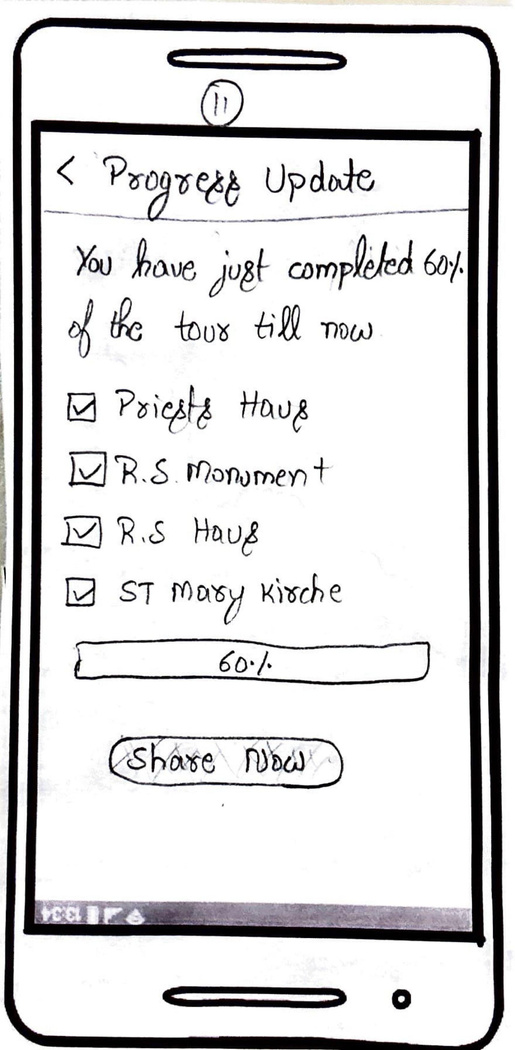 11
< Progress Update
You have just completed 60%
of the tour till now
Priests Haus
R.S. Monument
R.S Haus
ST Mary Kirche
60%
Share Now